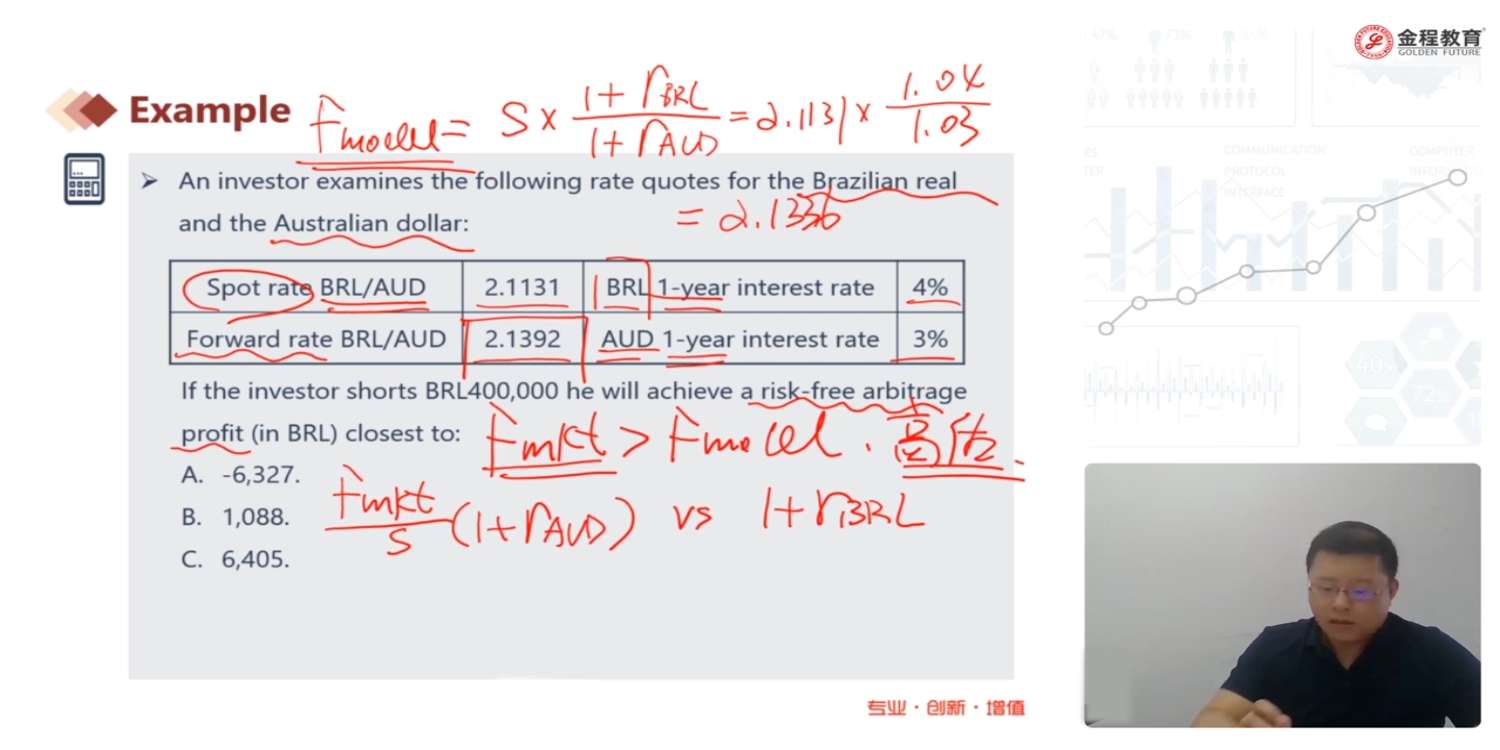 金程教育
GOLDEN FUTURE
Example
Fmodel = S × (1 + rBRL)/(1 + rAUD) = 2.1131 × 1.04/1.03
➤ An investor examines the following rate quotes for the Brazilian real
= 2.1336
and the Australian dollar:
COMMUNICATION
PROTOCOL
INTERFACE
Spot rate BRL/AUD 2.1131 BRL 1-year interest rate 4%
Forward rate BRL/AUD 2.1392 AUD 1-year interest rate 3%
If the investor shorts BRL400,000 he will achieve a risk-free arbitrage
profit (in BRL) closest to:
Fmkt > Fmodel. 高估.
A. -6,327.
B. 1,088.
Fmkt/S (1 + rAUD) vs 1 + rBRL
C. 6,405.
专业·创新·增值